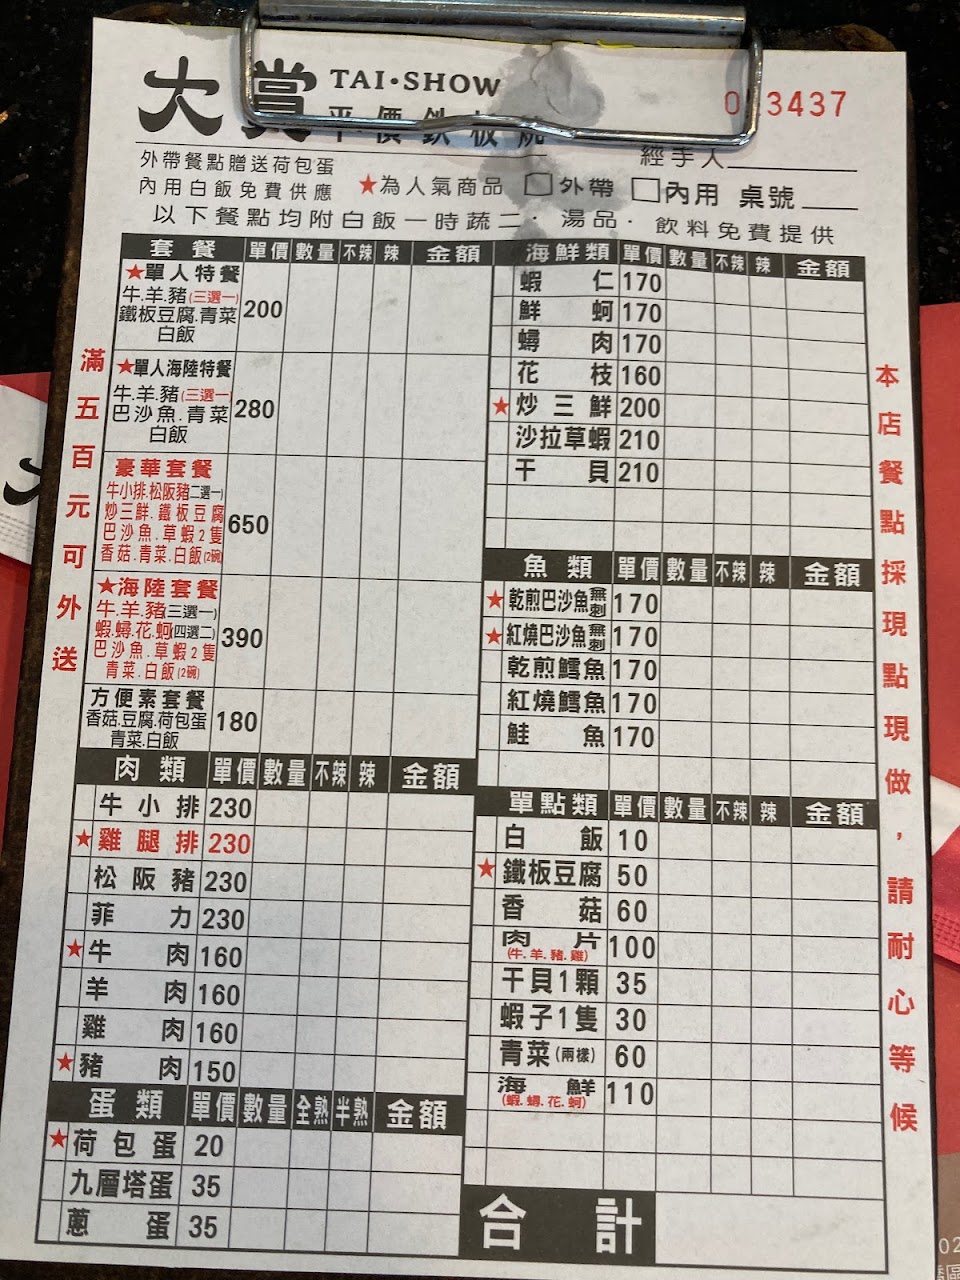 大賞 TAI·SHOW
平價鉄板燒
3437
外帶餐點贈送荷包蛋
經手人
內用白飯免費供應 ★為人氣商品 □外帶 □內用 桌號
以下餐點均附白飯一時蔬二.湯品.飲料免費提供
滿五百元可外送
套餐 單價 數量 不辣 辣 金額
★單人特餐
牛.羊.豬(三選一)
鐵板豆腐.青菜
白飯
200
★單人海陸特餐
牛.羊.豬(三選一)
巴沙魚.青菜
白飯
280
豪華套餐
牛小排.松阪豬二選一)
炒三鮮.鐵板豆腐
巴沙魚.草蝦2隻
香菇.青菜.白飯(2碗)
650
★海陸套餐
牛.羊.豬(三選一)
蝦.蟳.花.蚵(四選二)
巴沙魚.草蝦2隻
青菜.白飯(2碗)
390
方便素套餐
香菇.豆腐.荷包蛋
青菜.白飯
180
肉類 單價 數量 不辣 辣 金額
牛小排 230
★雞腿排 230
松阪豬 230
菲力 230
★牛肉 160
羊肉 160
雞肉 160
★豬肉 150
蛋類 單價 數量 全熟 半熟 金額
★荷包蛋 20
九層塔蛋 35
蔥蛋 35
海鮮類 單價 數量 不辣 辣 金額
蝦仁 170
鮮蚵 170
蟳肉 170
花枝 160
★炒三鮮 200
沙拉草蝦 210
干貝 210
魚類 單價 數量 不辣 辣 金額
★乾煎巴沙魚無刺 170
★紅燒巴沙魚無刺 170
乾煎鱈魚 170
紅燒鱈魚 170
鮭魚 170
單點類 單價 數量 不辣 辣 金額
白飯 10
★鐵板豆腐 50
香菇 60
肉片 100
(牛.羊.豬.雞)
干貝1顆 35
蝦子1隻 30
青菜(兩樣) 60
海鮮 110
(蝦.蟳.花.蚵)
合計
本店餐點採現點現做,請耐心等候
02